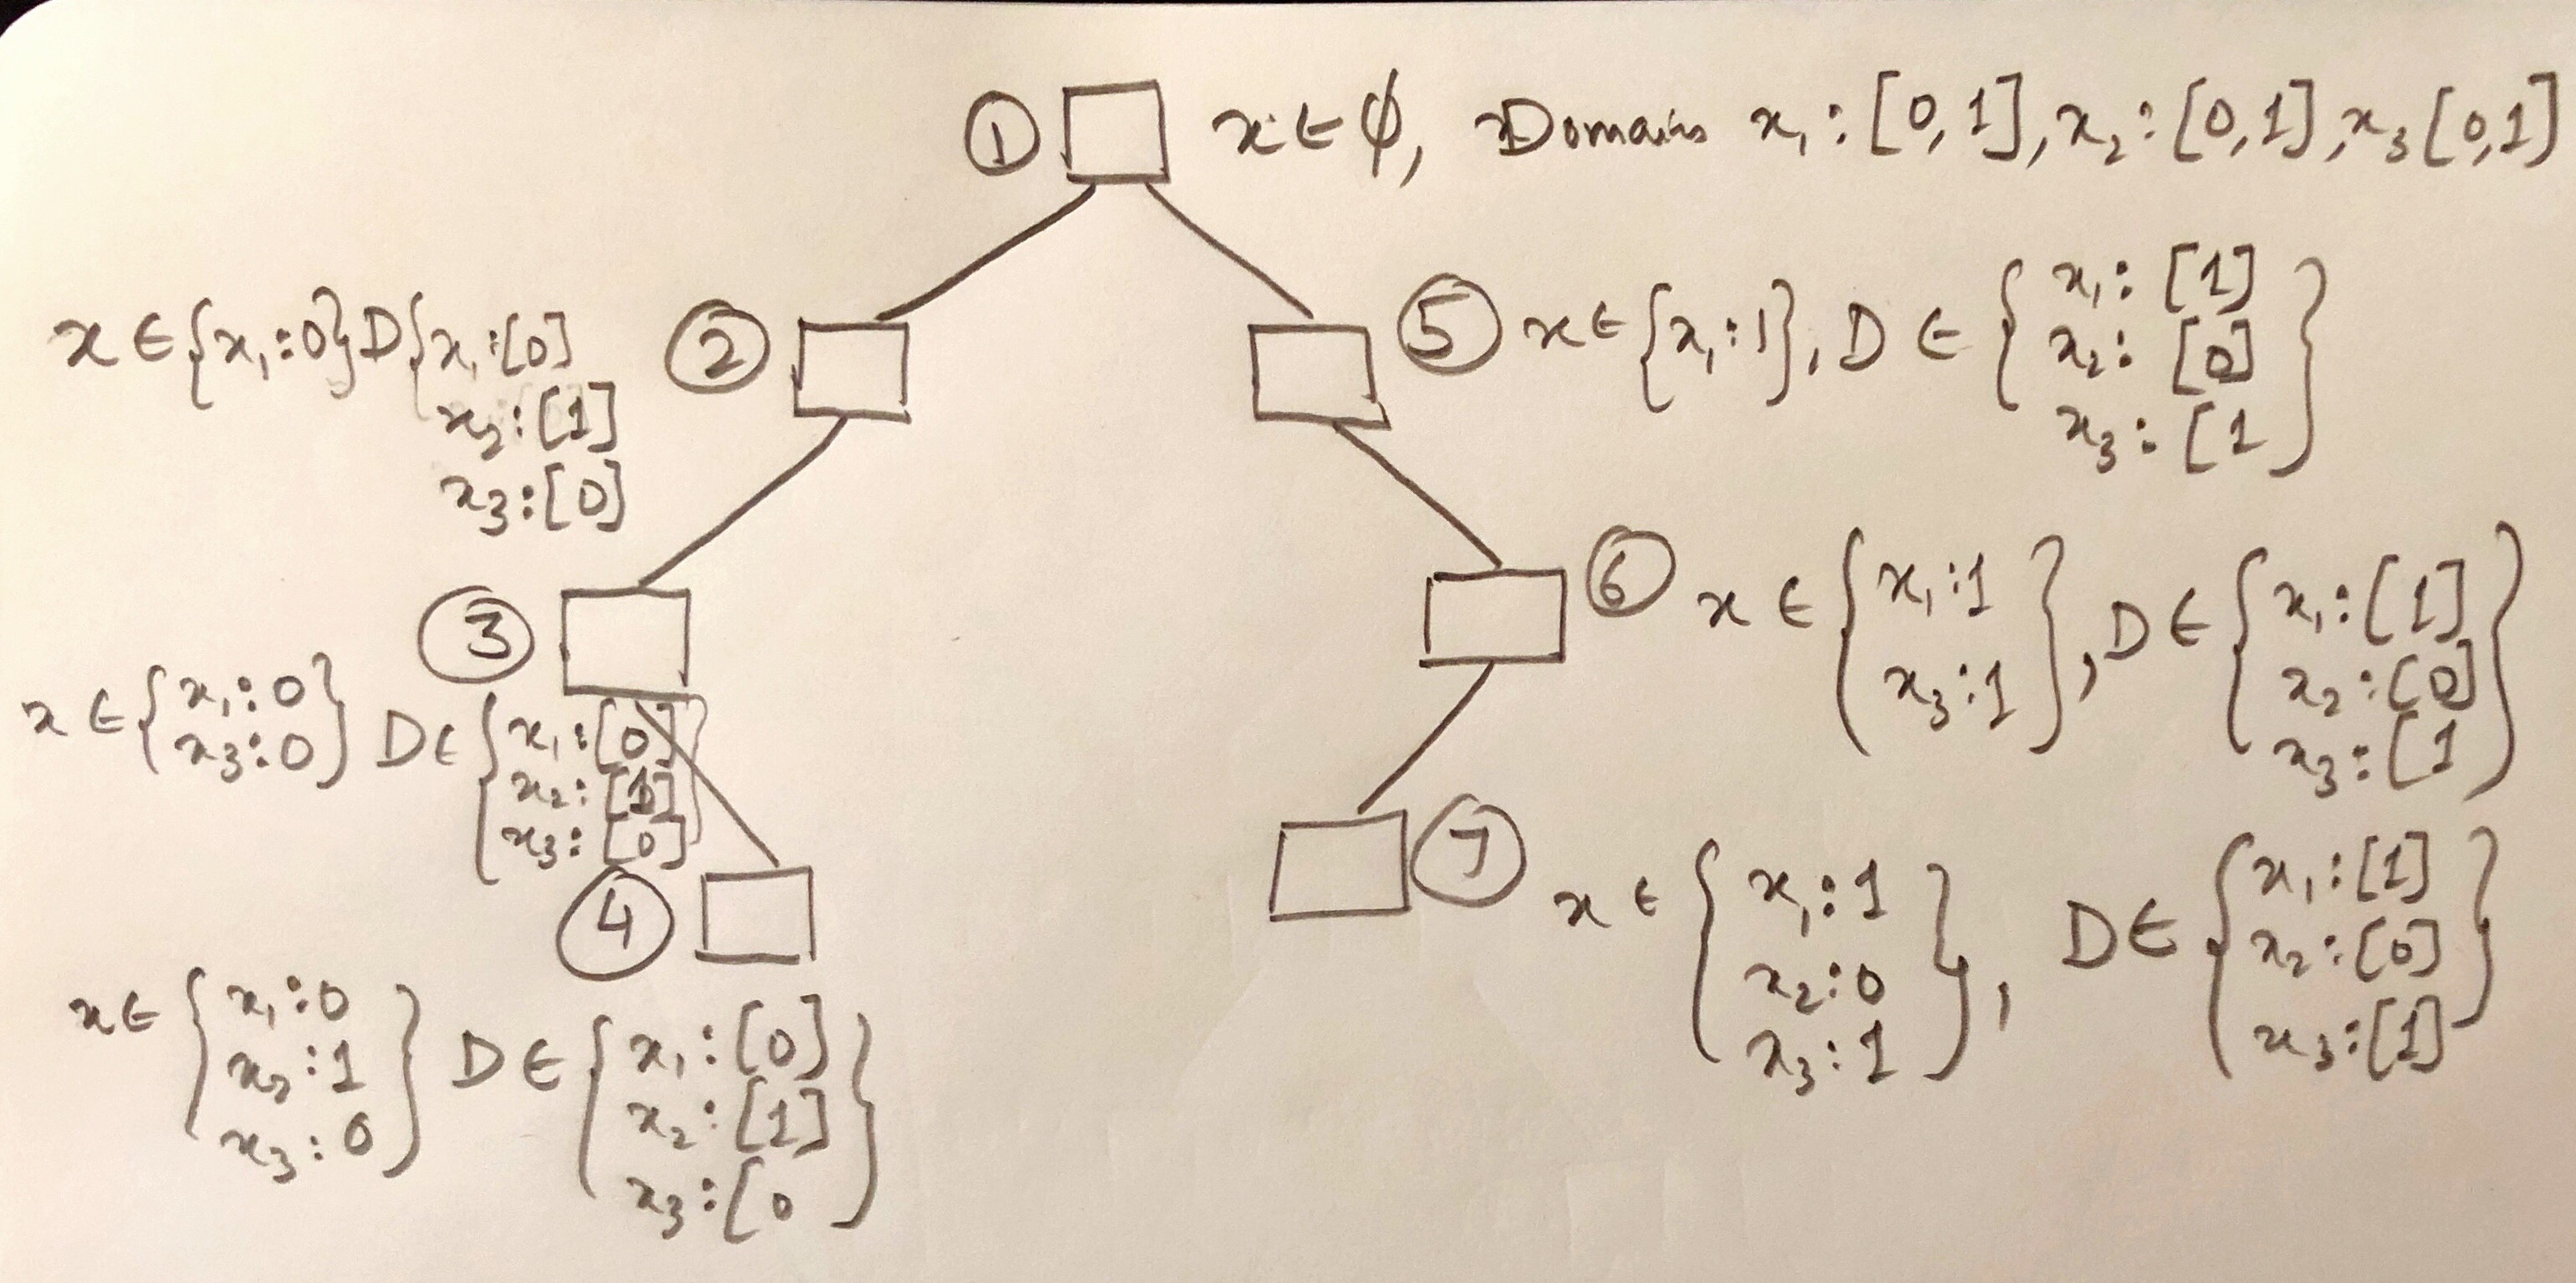 ① x ∈ ϕ, Domains x₁:[0,1], x₂:[0,1], x₃[0,1]
② x ∈ {x₁:0} D{x₁:[0]
x₂:[1]
x₃:[0]
⑤ x ∈ {x₁:1}, D ∈ { x₁: [1]
x₂: [0]
x₃: [1 }
③ x ∈ { x₁:0
x₃:0 } D ∈ { x₁:[0]
x₂:
x₃:[0] }
⑥ x ∈ { x₁:1
x₃:1 }, D ∈ { x₁:[1]
x₂:[0]
x₃:[1 }
④ x ∈ { x₁:0
x₂:1
x₃:0 } D ∈ { x₁:[0]
x₂:[1]
x₃:[0 }
⑦ x ∈ { x₁:1
x₂:0
x₃:1 }, D ∈ { x₁:[1]
x₂:[0]
x₃:[1] }